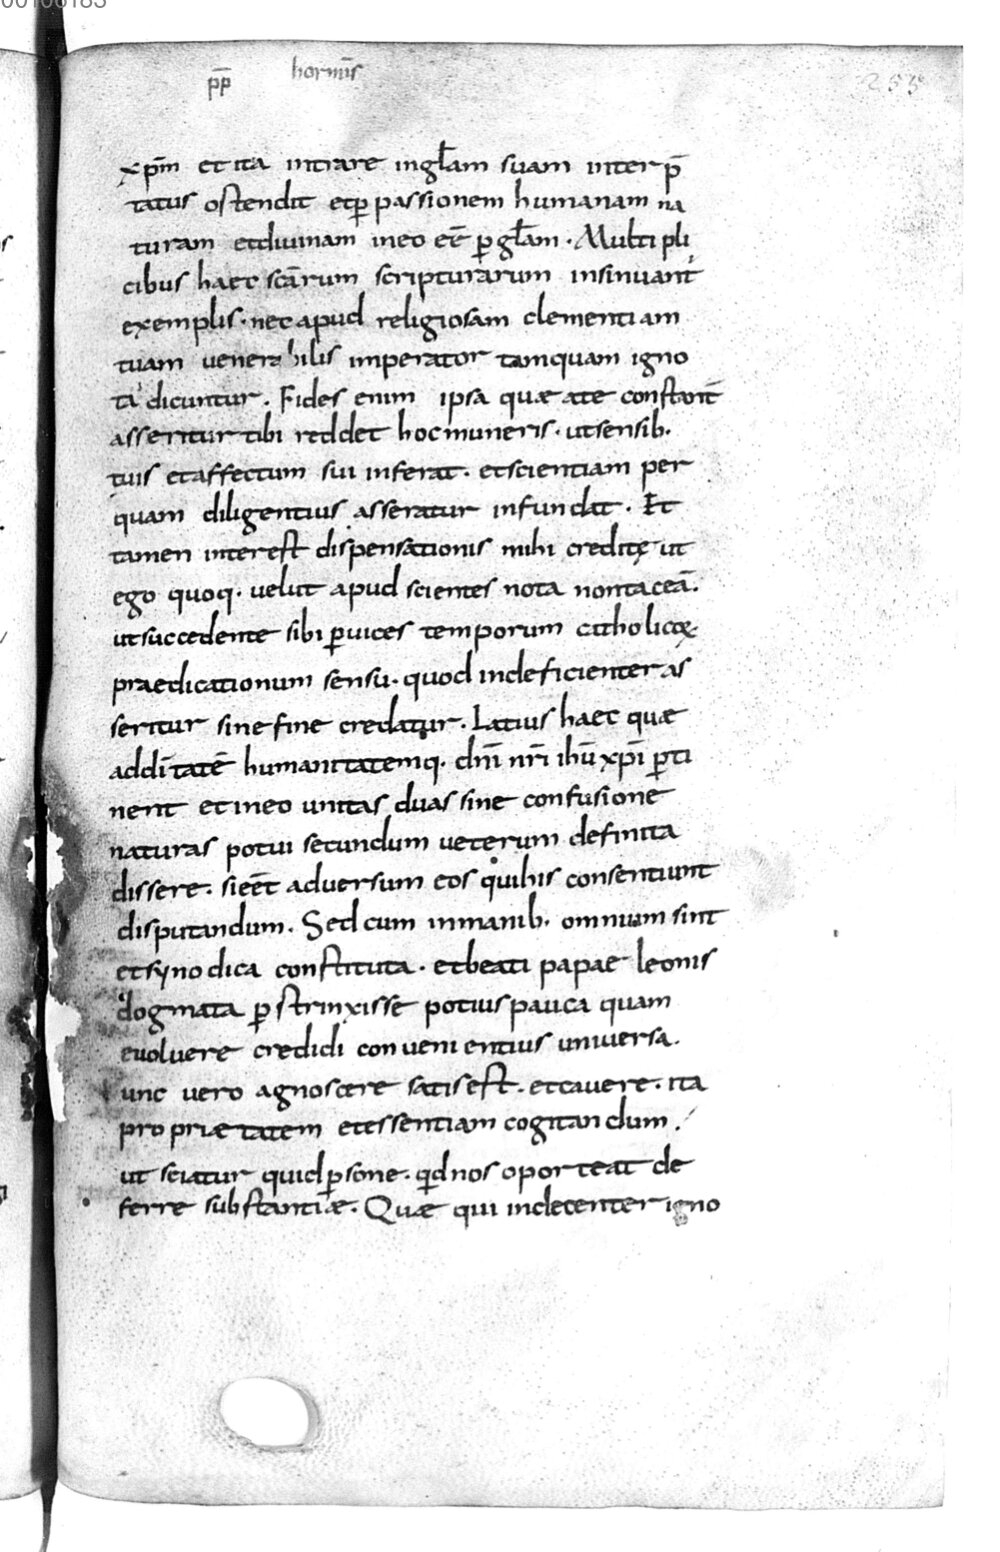 pp̄ hormīs
255
xp̄m et ita intrare in gl̄am suam interp̄
tatus ostendit et ꝑ passionem humanam na
turam et diuinam in eo eē ꝑ gl̄am · Multi pli
cibus haec scārum scripturarum insinuant̄
exemplis · nec apud religiosam clementiam
tuam venerabilis imperator tamquam igno
ta dicuntur. Fides enim ipsa quae a te constant̄
asseritur tibi reddet hoc muneris · ut sensib·
tuis et affectum sui inferat · et scientiam per
quam diligentius asseratur infundat · Et
tamen interest dispensationis mihi creditę ut
ego quoq· velut apud scientes nota non taceā·
ut succedente sibi ꝑ uices temporum catholicae
praedicationum sensu · quod indeficienter as
seritur sine fine credatur · Latius haec quae
ad dī tatē humanitatemq· dn̄i nr̄i ih̄u xp̄i ꝑti
nent et in eo unitas duas sine confusione
naturas potui secundum veterum definita
dissere · si eēt adversum eos quihis consentiunt
disputandum · Sed cum in manib· omnium sint
et synodica constituta · et beati papae leonis
dogmata ꝑstrinxisse potius pauca quam
evoluere credidi convenientius universa.
unc vero agnoscere satis est · et cavere · ita
proprietatem et essentiam cogitandum ·
ut sciatur quid ꝑsone · qd̄ nos oporteat de
ferre substantiae · Quae qui indecenter igno